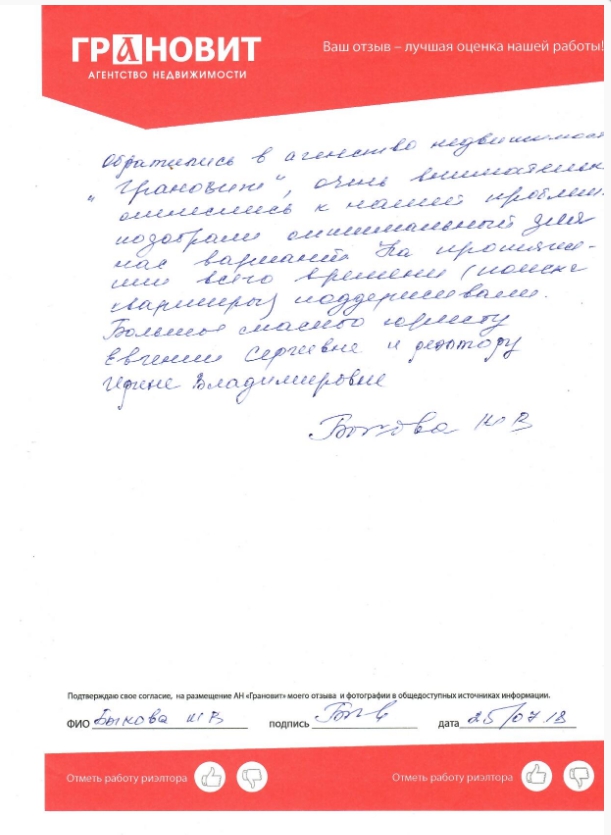 ГРАНОВИТ
АГЕНТСТВО НЕДВИЖИМОСТИ
Ваш отзыв – лучшая оценка нашей работы!
Обратились в агенство недвижимос
"Грановит", очень внимательн
отнеслись к нашей проблем
подобрали оптимальный для
нас вариант. На протяже-
нии всего времени (поиска
квартиры) поддерживали.
Большое спасибо юристу
Евгении Сергеевне и риэлтору
Ирине Владимировне
Быкова Ю В
Подтверждаю свое согласие, на размещение АН «Грановит» моего отзыва и фотографии в общедоступных источниках информации.
ФИО Быкова Ю В подпись дата 25/07.18
Отметь работу риэлтора Отметь работу риэлтора